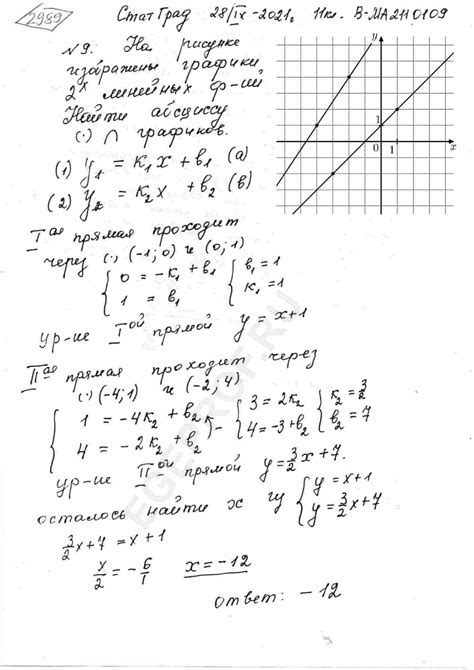 2989
СтатГрад 28/IX-2021г. 11кл. В-МА2110109
№9. На рисунке
изображены графики
2х линейных ф-ий
Найти абсциссу
(·) ∩ графиков.
y
1
0
1
x
(1) y₁ = к₁x + в₁ (а)
(2) y₂ = к₂x + в₂ (в)
Iая прямая проходит
через (·) (-1; 0) и (0; 1)
{ 0 = -к₁ + в₁ { в₁ = 1
1 = в₁ к₁ = 1
ур-ие Iой прямой y = x+1
IIая прямая проходит через
(·) (-4; 1) и (-2; 4)
{ 1 = -4к₂ + в₂ - { 3 = 2к₂ { к₂ = 3/2
4 = -2к₂ + в₂ 4 = -3+в₂ в₂ = 7
ур-ие IIой прямой y = 3/2x + 7.
осталось найти x из { y = x+1
y = 3/2x+7
3/2x+7 = x+1
x/2 = -6/1 x = -12
ответ: -12
EGEPROF.RU